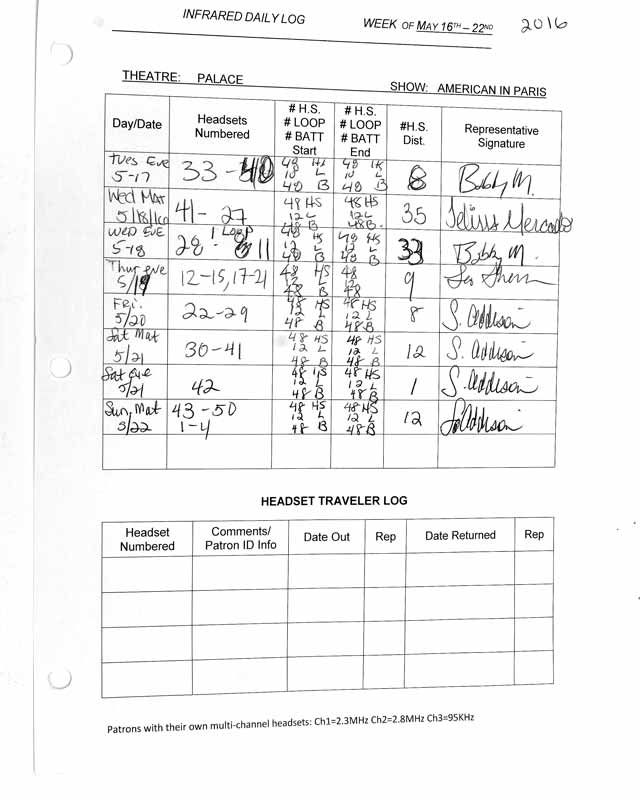 INFRARED DAILY LOG WEEK OF MAY 16TH – 22ND 2016
THEATRE: PALACE SHOW: AMERICAN IN PARIS
Day/Date Headsets Numbered # H.S. # LOOP # BATT Start # H.S. # LOOP # BATT End #H.S. Dist. Representative Signature
Tues Eve 5-17 33-40 48 HS 10 L 48 B 48 HS 10 L 48 B 8 Bobby M.
Wed Mat 5/18/16 41- 27 48 HS 12 L 48 B 48 HS 12 L 48 B 35
WED EVE 5-18 28- 11 1 LOOP 48 HS 12 L 48 B 48 HS 12 L 48 B 33 Bobby M.
Thur eve 5/19 12-15, 17-21 48 HS 12 L 48 B 48 12 48 9
Fri. 5/20 22-29 48 HS 12 L 48 B 48 HS 12 L 48 B 8 S. Addison
Sat Mat 5/21 30-41 48 HS 12 L 48 B 48 HS 12 L 48 B 12 S. Addison
Sat eve 5/21 42 48 HS 12 L 48 B 48 HS 12 L 48 B 1 S. Addison
Sun, Mat 5/22 43-50 1-4 48 HS 12 L 48 B 48 HS 12 L 48 B 12 Addison
HEADSET TRAVELER LOG
Headset Numbered Comments/ Patron ID Info Date Out Rep Date Returned Rep
Patrons with their own multi-channel headsets: Ch1=2.3MHz Ch2=2.8MHz Ch3=95KHz